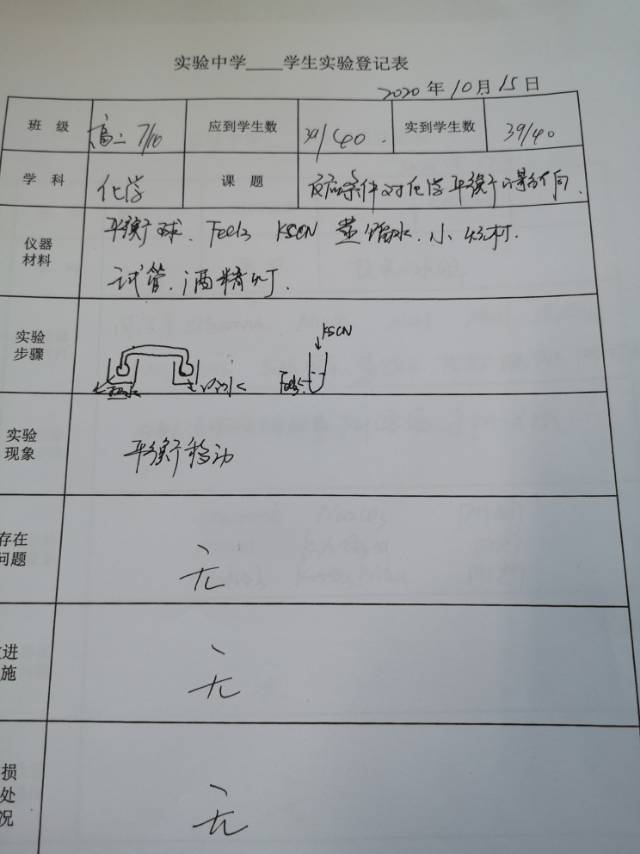 实验中学____学生实验登记表
2020年10月15日
班 级 高二 7/10 应到学生数 39/40. 实到学生数 39/40
学 科 化学 课 题 反应条件对化学平衡的影响.
仪器
材料
平衡球. FeCl3 KSCN 蒸馏水. 小烧杯.
试管. 酒精灯.
实验
步骤
KSCN
FeCl3
实验
现象
平衡移动
存在
问题
无
进
施
无
损
处
况
无